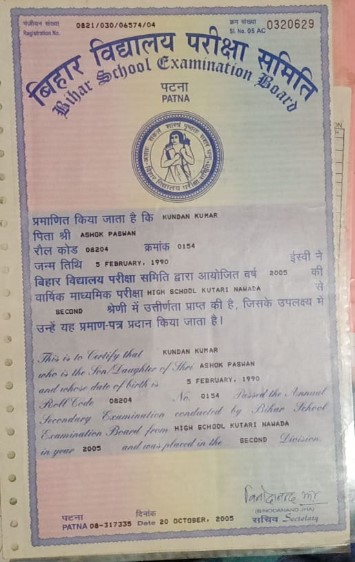 पंजीयन संख्या 0821/030/06574/04 क्रम संख्या 0320629
Registration No. Sl. No. 05 AC
बिहार विद्यालय परीक्षा समिति
Bihar School Examination Board
पटना
PATNA
प्रमाणित किया जाता है कि KUNDAN KUMAR
पिता श्री ASHOK PASWAN
रौल कोड 08204 क्रमांक 0154
जन्म तिथि 5 FEBRUARY, 1990 ईस्वी ने
बिहार विद्यालय परीक्षा समिति द्वारा आयोजित वर्ष 2005 की
वार्षिक माध्यमिक परीक्षा HIGH SCHOOL KUTARI NAWADA से
SECOND श्रेणी में उत्तीर्णता प्राप्त की है, जिसके उपलक्ष्य में
उन्हें यह प्रमाण-पत्र प्रदान किया जाता है।
This is to Certify that KUNDAN KUMAR
who is the Son/Daughter of Shri ASHOK PASWAN
and whose date of birth is 5 FEBRUARY, 1990
Roll Code 08204 No. 0154 Passed the Annual
Secondary Examination conducted by Bihar School
Examination Board from HIGH SCHOOL KUTARI NAWADA
in year 2005 and was placed in the SECOND Division.
(BINODANAND JHA)
पटना दिनांक
PATNA 06-317335 Date 20 OCTOBER, 2005 सचिव Secretary